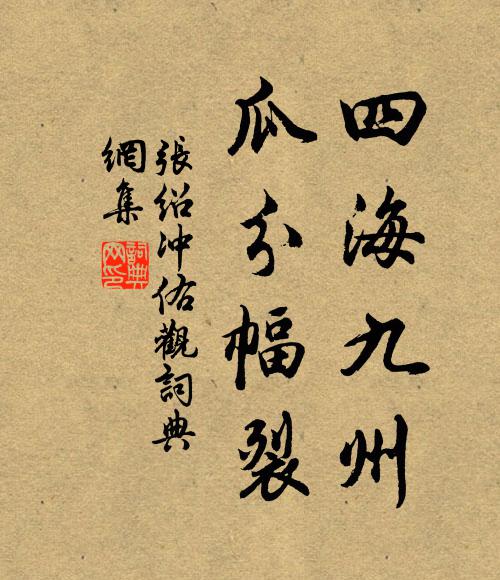 四海九州
瓜分幅裂
張紹冲佑觀詞典
網集
詞典網印